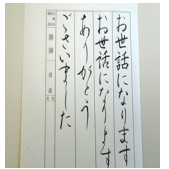 お世話になります
お世話になります
ありがとう
ございました